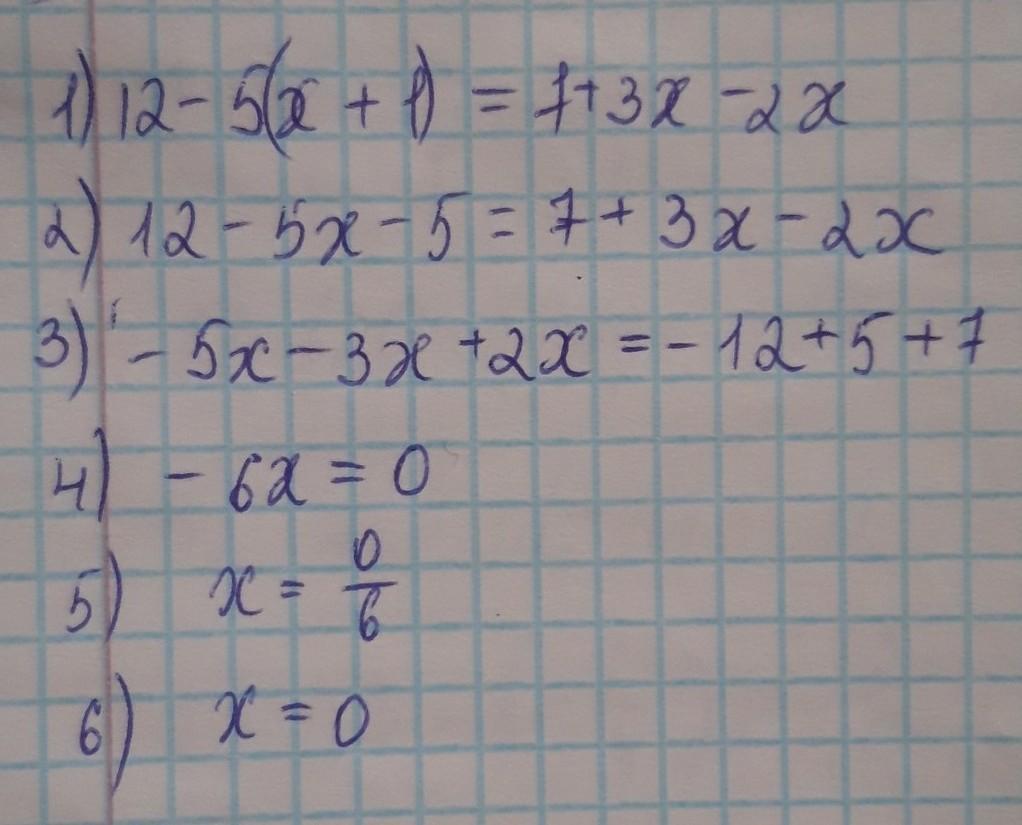 1) 12 - 5(x + 1) = 7 + 3x - 2x
2) 12 - 5x - 5 = 7 + 3x - 2x
3) - 5x - 3x + 2x = - 12 + 5 + 7
4) - 6x = 0
5) x = 0/6
6) x = 0